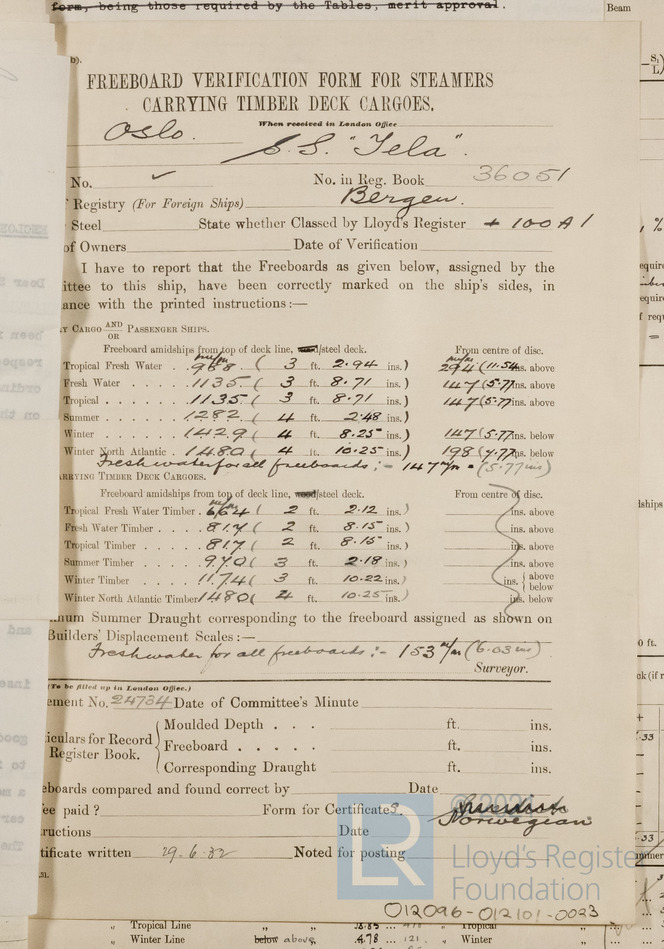 form, being those required by the Tables, merit approval.
Beam
b).
FREEBOARD VERIFICATION FORM FOR STEAMERS
CARRYING TIMBER DECK CARGOES.
When received in London Office
Oslo.
S.S. "Tela".
No. ✓ No. in Reg. Book 36051
Registry (For Foreign Ships) Bergen.
Steel State whether Classed by Lloyd's Register + 100 A 1
of Owners Date of Verification
I have to report that the Freeboards as given below, assigned by the
ittee to this ship, have been correctly marked on the ship's sides, in
ance with the printed instructions:—
Y CARGO AND OR PASSENGER SHIPS.
Freeboard amidships from top of deck line, wood/steel deck. From centre of disc.
m/m
Tropical Fresh Water . 988 ( 3 ft. 2.94 ins.) 294 (11.54 ins. above
Fresh Water . . . . . 1135 ( 3 ft. 8.71 ins.) 147 (5.77 ins. above
Tropical . . . . . . 1135 ( 3 ft. 8.71 ins.) 147 (5.77 ins. above
Summer . . . . . . 1282 ( 4 ft. 2.48 ins.)
Winter . . . . . . 1429 ( 4 ft. 8.25 ins.) 147 (5.77 ins. below
Winter North Atlantic . 1480 ( 4 ft. 10.25 ins.) 198 (7.77 ins. below
Freshwater for all freeboards:- 147 m/m = (5.77 ins)
ARRYING TIMBER DECK CARGOES.
Freeboard amidships from top of deck line, wood/steel deck. From centre of disc.
m/m
Tropical Fresh Water Timber . 664 ( 2 ft. 2.12 ins.) ins. above
Fresh Water Timber . . . 817 ( 2 ft. 8.15 ins.) ins. above
Tropical Timber . . . . 817 ( 2 ft. 8.15 ins.) ins. above
Summer Timber . . . . 970 ( 3 ft. 2.18 ins.) ins. above
Winter Timber . . . . 1174 ( 3 ft. 10.22 ins.) ins. above below
Winter North Atlantic Timber 1480 ( 4 ft. 10.25 ins.) ins. below
num Summer Draught corresponding to the freeboard assigned as shown on
Builders' Displacement Scales:—
Freshwater for all freeboards:- 153 m/m (6.03 ins)
Surveyor.
(To be filled up in London Office.)
ement No. 24734 Date of Committee's Minute
iculars for Record Register Book.
Moulded Depth . . . ft. ins.
Freeboard . . . . . ft. ins.
Corresponding Draught ft. ins.
eboards compared and found correct by Date
ee paid ? Form for Certificates.
Norwegian
ructions Date
tificate written 29.6.32 Noted for posting
Lloyd's Register
Foundation
012096-012101-0023
Tropical Line
Winter Line below above, 478 121 Winter